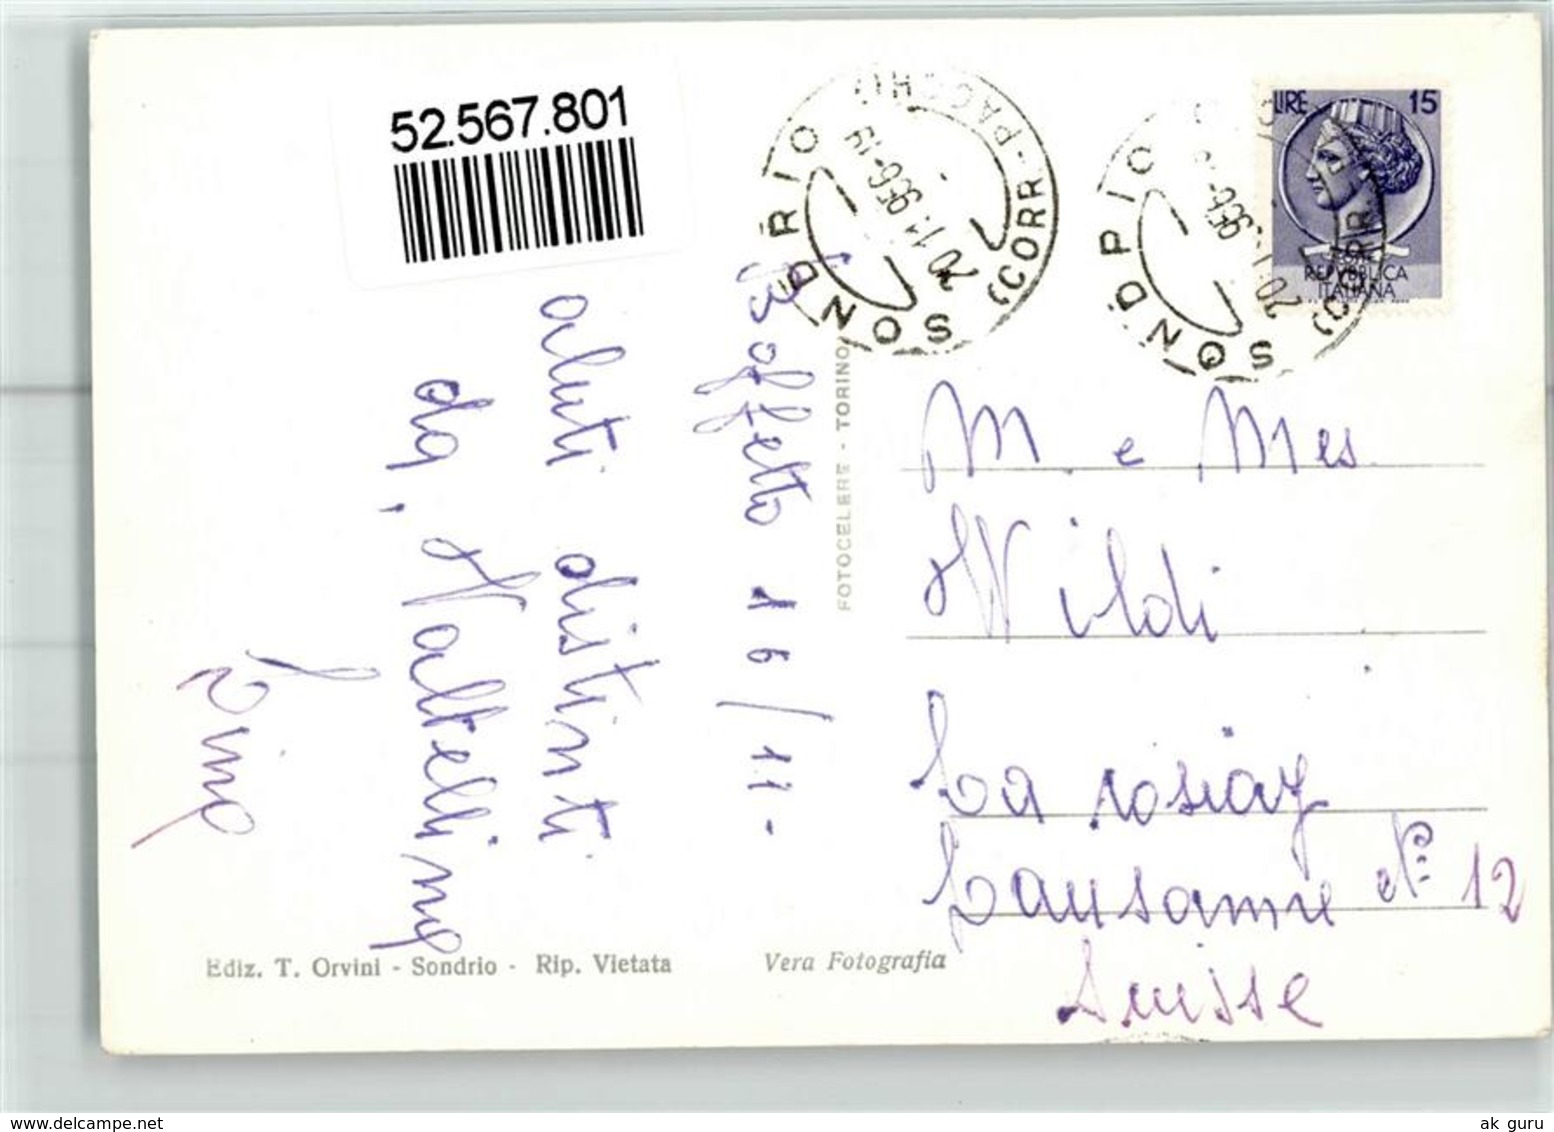 52.567.801
SONDRIO
(CORR.-PACCHI)
20.11.956-19
SONDRIO
(CORR.
20.1
956-
LIRE 15
REPVBBLICA
ITALIANA
Boffetto 16/11-
aluti distinti
da, Valtellina
Pino
FOTOCELERE - TORINO
M. e Mes.
Wildi
La rosiaz
Lausanne N° 12
Suisse
Ediz. T. Orvini - Sondrio - Rip. Vietata
Vera Fotografia
www.delcampe.net
ak_guru